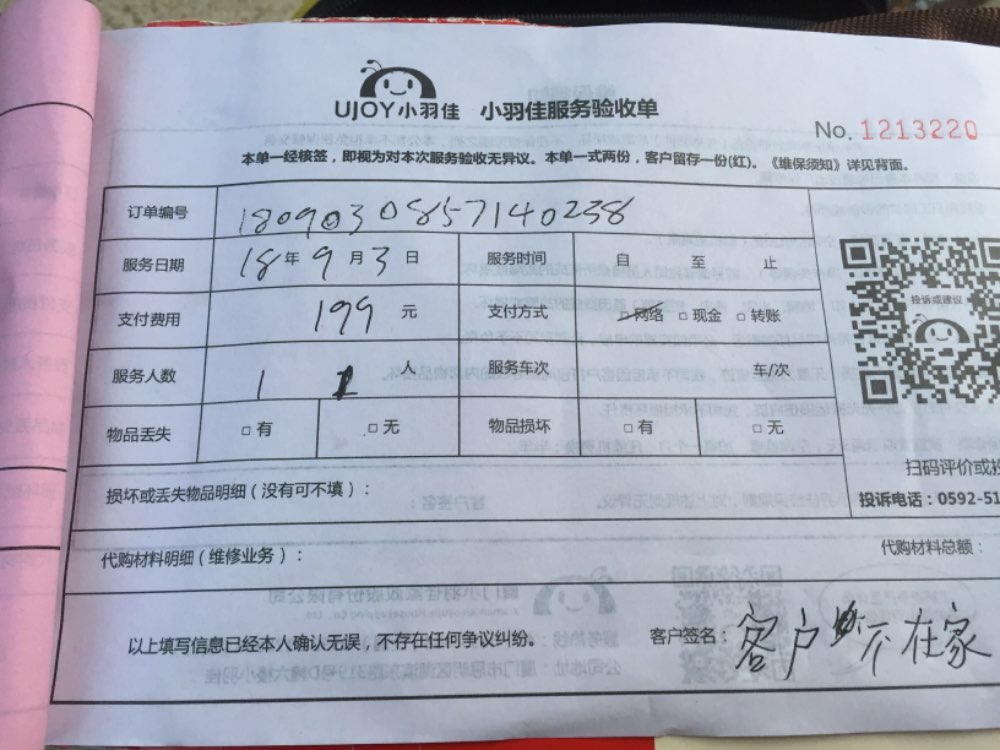 UJOY小羽佳 小羽佳服务验收单
No. 1213220
本单一经核签，即视为对本次服务验收无异议。本单一式两份，客户留存一份(红)。《维保须知》详见背面。
订单编号 180903 0857140238
服务日期 18年9月3日 服务时间 自 至 止
支付费用 199 元 支付方式 □网络 □现金 □转账
投诉或建议
服务人数 1 1 人 服务车次 车/次
物品丢失 □有 □无 物品损坏 □有 □无
扫码评价或投
损坏或丢失物品明细（没有可不填）：
投诉电话：0592-51
代购材料明细（维修业务）： 代购材料总额：
以上填写信息已经本人确认无误，不存在任何争议纠纷。 客户签名：客户不在家